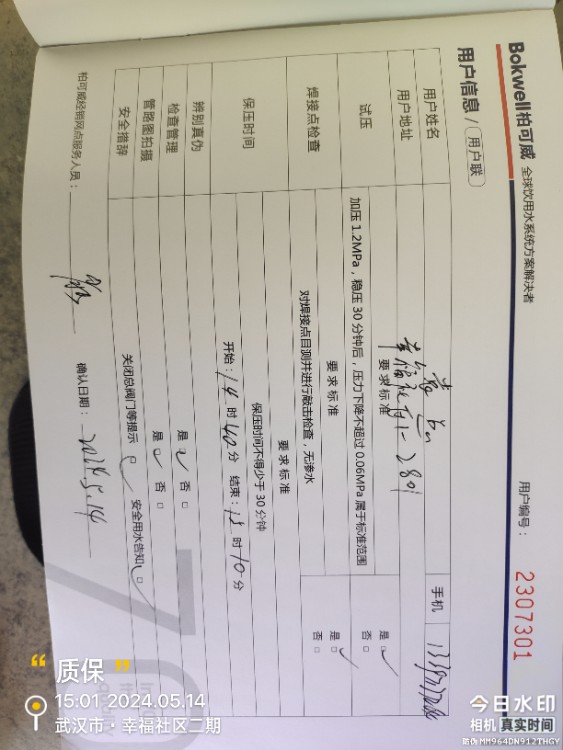 Bokwell柏可威 全球饮用水系统方案解决者
用户编号：2307301
用户信息/用户联
用户姓名
手机
用户地址
1-2801
试压
要求标准
加压1.2MPa，稳压30分钟后，压力下降不超过0.06MPa属于标准范围
是□✓
否□
焊接点检查
要求标准
对焊接点目测并进行敲击检查，无渗水
是□✓
否□
保压时间
要求标准
保压时间不得少于30分钟
开始：14时40分 结束：15时10分
辨别真伪
是✓ 否□
检查管理
是✓ 否□
管路图拍摄
安全措辞
关闭总阀门等提示□✓ 安全用水告知□✓
柏可威经销网点服务人员：
确认日期：2024.5.14
“质保”
15:01 2024.05.14
武汉市·幸福社区二期
今日水印
相机 真实时间
防伪 MM964DN912THGY